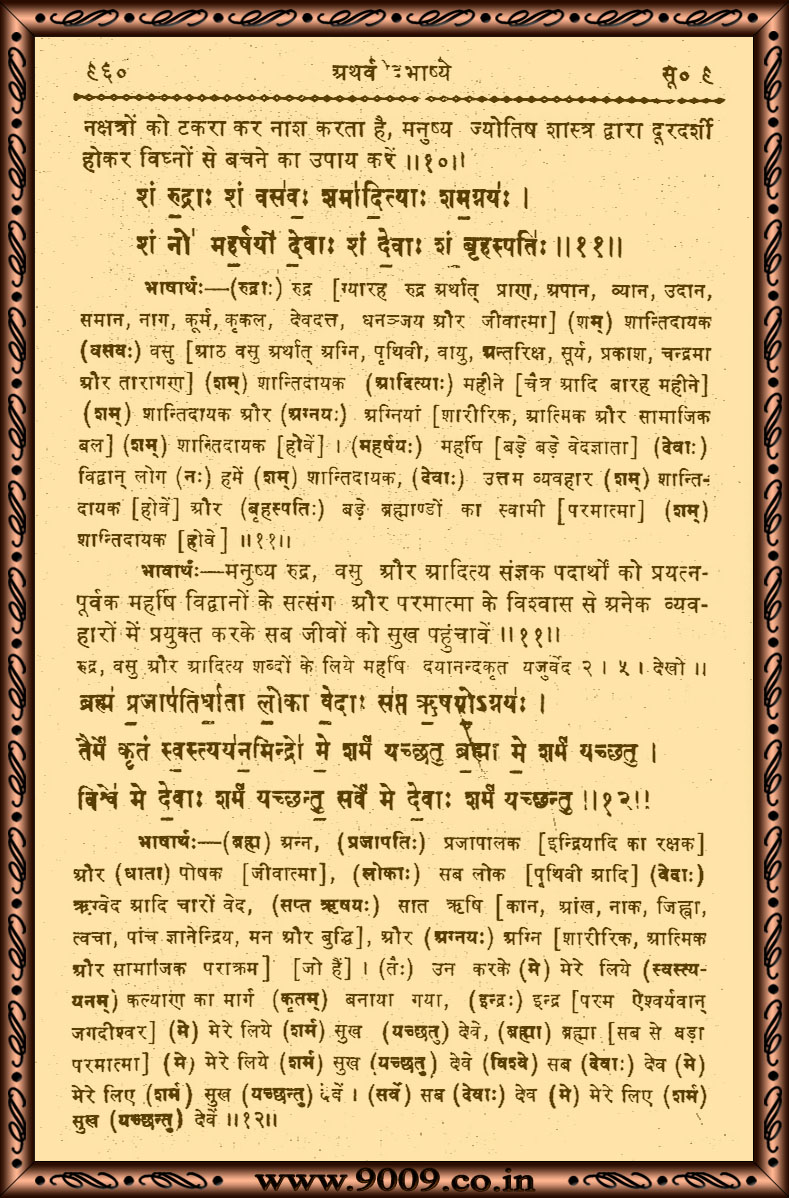 ९६० अथर्ववेदभाष्ये सू० ९
नक्षत्रों को टकरा कर नाश करता है, मनुष्य ज्योतिष शास्त्र द्वारा दूरदर्शी
होकर विघ्नों से बचने का उपाय करें ॥१०॥
शं रु॒द्राः शं वस॑वः॒ शमा॑दि॒त्याः शम॒ग्नयः॑ ।
शं नो॑ मह॒र्षयो॑ दे॒वाः शं दे॒वाः शं बृह॒स्पतिः॑ ॥११॥
भाषार्थः—(रुद्राः) रुद्र [ग्यारह रुद्र अर्थात् प्राण, अपान, व्यान, उदान,
समान, नाग, कूर्म, कृकल, देवदत्त, धनञ्जय और जीवात्मा] (शम्) शान्तिदायक
(वसवः) वसु [आठ वसु अर्थात् अग्नि, पृथिवी, वायु, अन्तरिक्ष, सूर्य, प्रकाश, चन्द्रमा
और तारागण] (शम्) शान्तिदायक (आदित्याः) महीने [चैत्र आदि बारह महीने]
(शम्) शान्तिदायक और (अग्नयः) अग्नियां [शारीरिक, आत्मिक और सामाजिक
बल] (शम्) शान्तिदायक [होवें] । (महर्षयः) महर्षि [बड़े बड़े वेदज्ञाता] (देवाः)
विद्वान् लोग (नः) हमें (शम्) शान्तिदायक, (देवाः) उत्तम व्यवहार (शम्) शान्ति-
दायक [होवें] और (बृहस्पतिः) बड़े ब्रह्माण्डों का स्वामी [परमात्मा] (शम्)
शान्तिदायक [होवे] ॥११॥
भावार्थः—मनुष्य रुद्र, वसु और आदित्य संज्ञक पदार्थों को प्रयत्न-
पूर्वक महर्षि विद्वानों के सत्संग और परमात्मा के विश्वास से अनेक व्यव-
हारों में प्रयुक्त करके सब जीवों को सुख पहुंचावें ॥११॥
रुद्र, वसु और आदित्य शब्दों के लिये महर्षि दयानन्दकृत यजुर्वेद २ । ५ । देखो ॥
ब्रह्म॑ प्र॒जाप॑तिर्धा॒ता लो॒का वे॒दाः स॑प्त ऋ॒षयो॒ऽग्नयः॑ ।
तैर्मे॑ कृ॒तं स्व॒स्त्यय॑न॒मिन्द्रो॑ मे॒ शर्म॑ यच्छतु ब्र॒ह्मा मे॒ शर्म॑ यच्छतु ।
विश्वे॑ मे दे॒वाः शर्म॑ यच्छन्तु॒ सर्वे॑ मे दे॒वाः शर्म॑ यच्छन्तु ॥१२॥
भाषार्थः—(ब्रह्म) अन्न, (प्रजापतिः) प्रजापालक [इन्द्रियादि का रक्षक]
और (धाता) पोषक [जीवात्मा], (लोकाः) सब लोक [पृथिवी आदि] (वेदाः)
ऋग्वेद आदि चारों वेद, (सप्त ऋषयः) सात ऋषि [कान, आंख, नाक, जिह्वा,
त्वचा, पांच ज्ञानेन्द्रिय, मन और बुद्धि], और (अग्नयः) अग्नि [शारीरिक, आत्मिक
और सामाजिक पराक्रम] [जो हैं] । (तैः) उन करके (मे) मेरे लिये (स्वस्त्य-
यनम्) कल्याण का मार्ग (कृतम्) बनाया गया, (इन्द्रः) इन्द्र [परम ऐश्वर्यवान्
जगदीश्वर] (मे) मेरे लिये (शर्म) सुख (यच्छतु) देवे, (ब्रह्मा) ब्रह्मा [सब से बड़ा
परमात्मा] (मे) मेरे लिये (शर्म) सुख (यच्छतु) देवे (विश्वे) सब (देवाः) देव (मे)
मेरे लिए (शर्म) सुख (यच्छन्तु) देवें । (सर्वे) सब (देवाः) देव (मे) मेरे लिए (शर्म)
सुख (यच्छन्तु) देवें ॥१२॥
www.9009.co.in